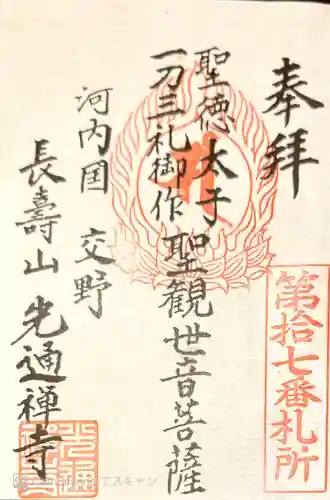 奉拝
第拾七番札所
聖徳太子
一刀三礼御作
聖観世音菩薩
河内国 交野
長壽山 光通禅寺